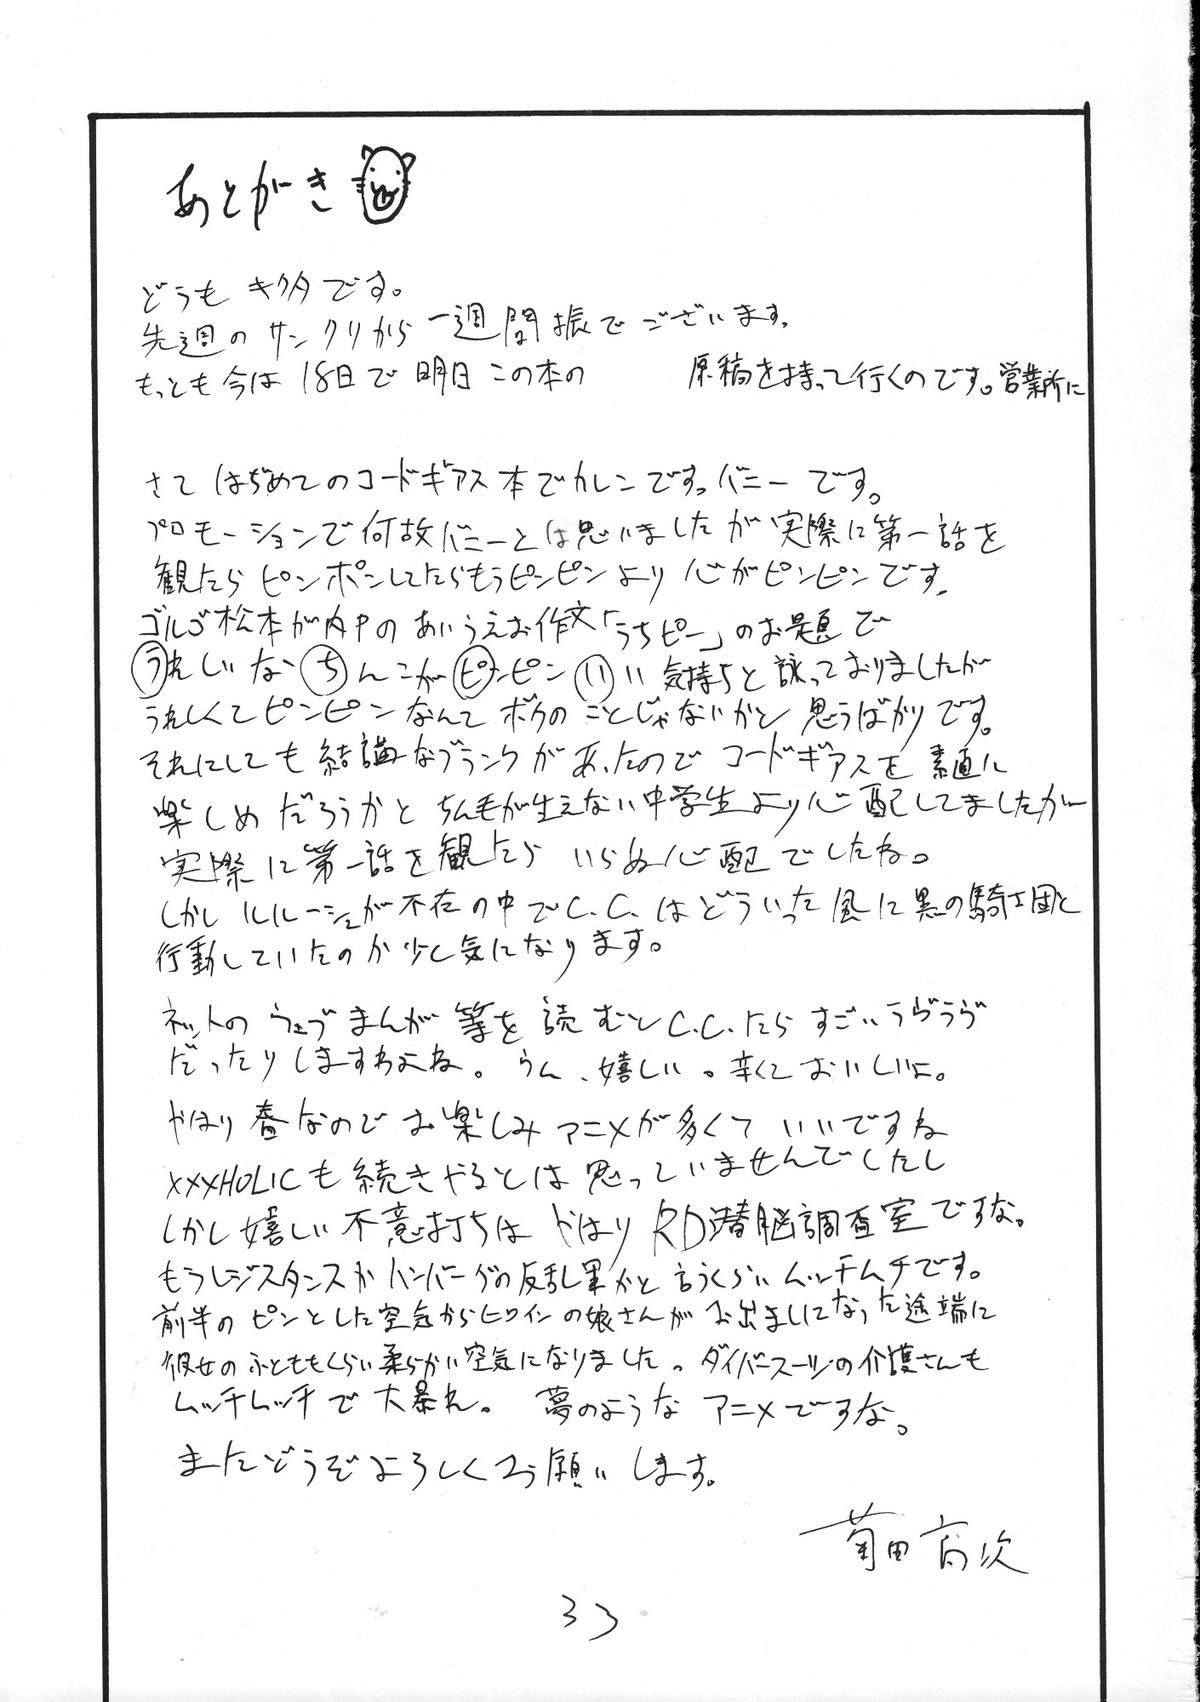 あとがき
どうも キクタです。
先週の サンクリから 一週間振でございます。
もっとも今は 18日で 明日 この本の 原稿を持って行くのです。営業所に
さて はぢめてのコードギアス本でカレンです。バニーです。
プロモーションで何故バニーとは思いましたが実際に第一話を
観たら ピンポンしてたらもうピンピンより 心がピンピンです。
ゴルゴ松本が内Pの あいうえお作文「うちピー」のお題で
うれしいな ちんこがピンピン いい気持ちと詠っておりましたが
うれしくてピンピンなんて ボクのことじゃないかと 思うばかりです。
それにしても結構なブランクがあったのでコードギアスを素直に
楽しめだろうかと ちん毛が生えない中学生より心配してましたが
実際に第一話を観たら いらぬ心配でしたね。
しかしルルーシュが不在の中でC.C.はどういった風に黒の騎士団と
行動していたのか少し気になります。
ネットの ウェブまんが等を読むとC.C.たら すごいうざうざ
だったりしますわよね。うん、嬉しい。辛くておいしいよ。
やはり春なのでお楽しみアニメが多くていいですね
xxxHOLICも続きやるとは思っていませんでしたし
しかし嬉しい不意打ちはやはりRD潜脳調査室ですな。
もうレジスタンスかハンバーグの反乱軍かと言うくらいムッチムチです。
前半の ピンとした空気からヒロインの娘さんがお出ましになった途端に
彼女のふとももくらい柔らかい空気になりました。ダイバースーツの介護さんも
ムッチムッチで大暴れ。夢のようなアニメですな。
またどうぞよろしくお願いします。
菊田高次
33